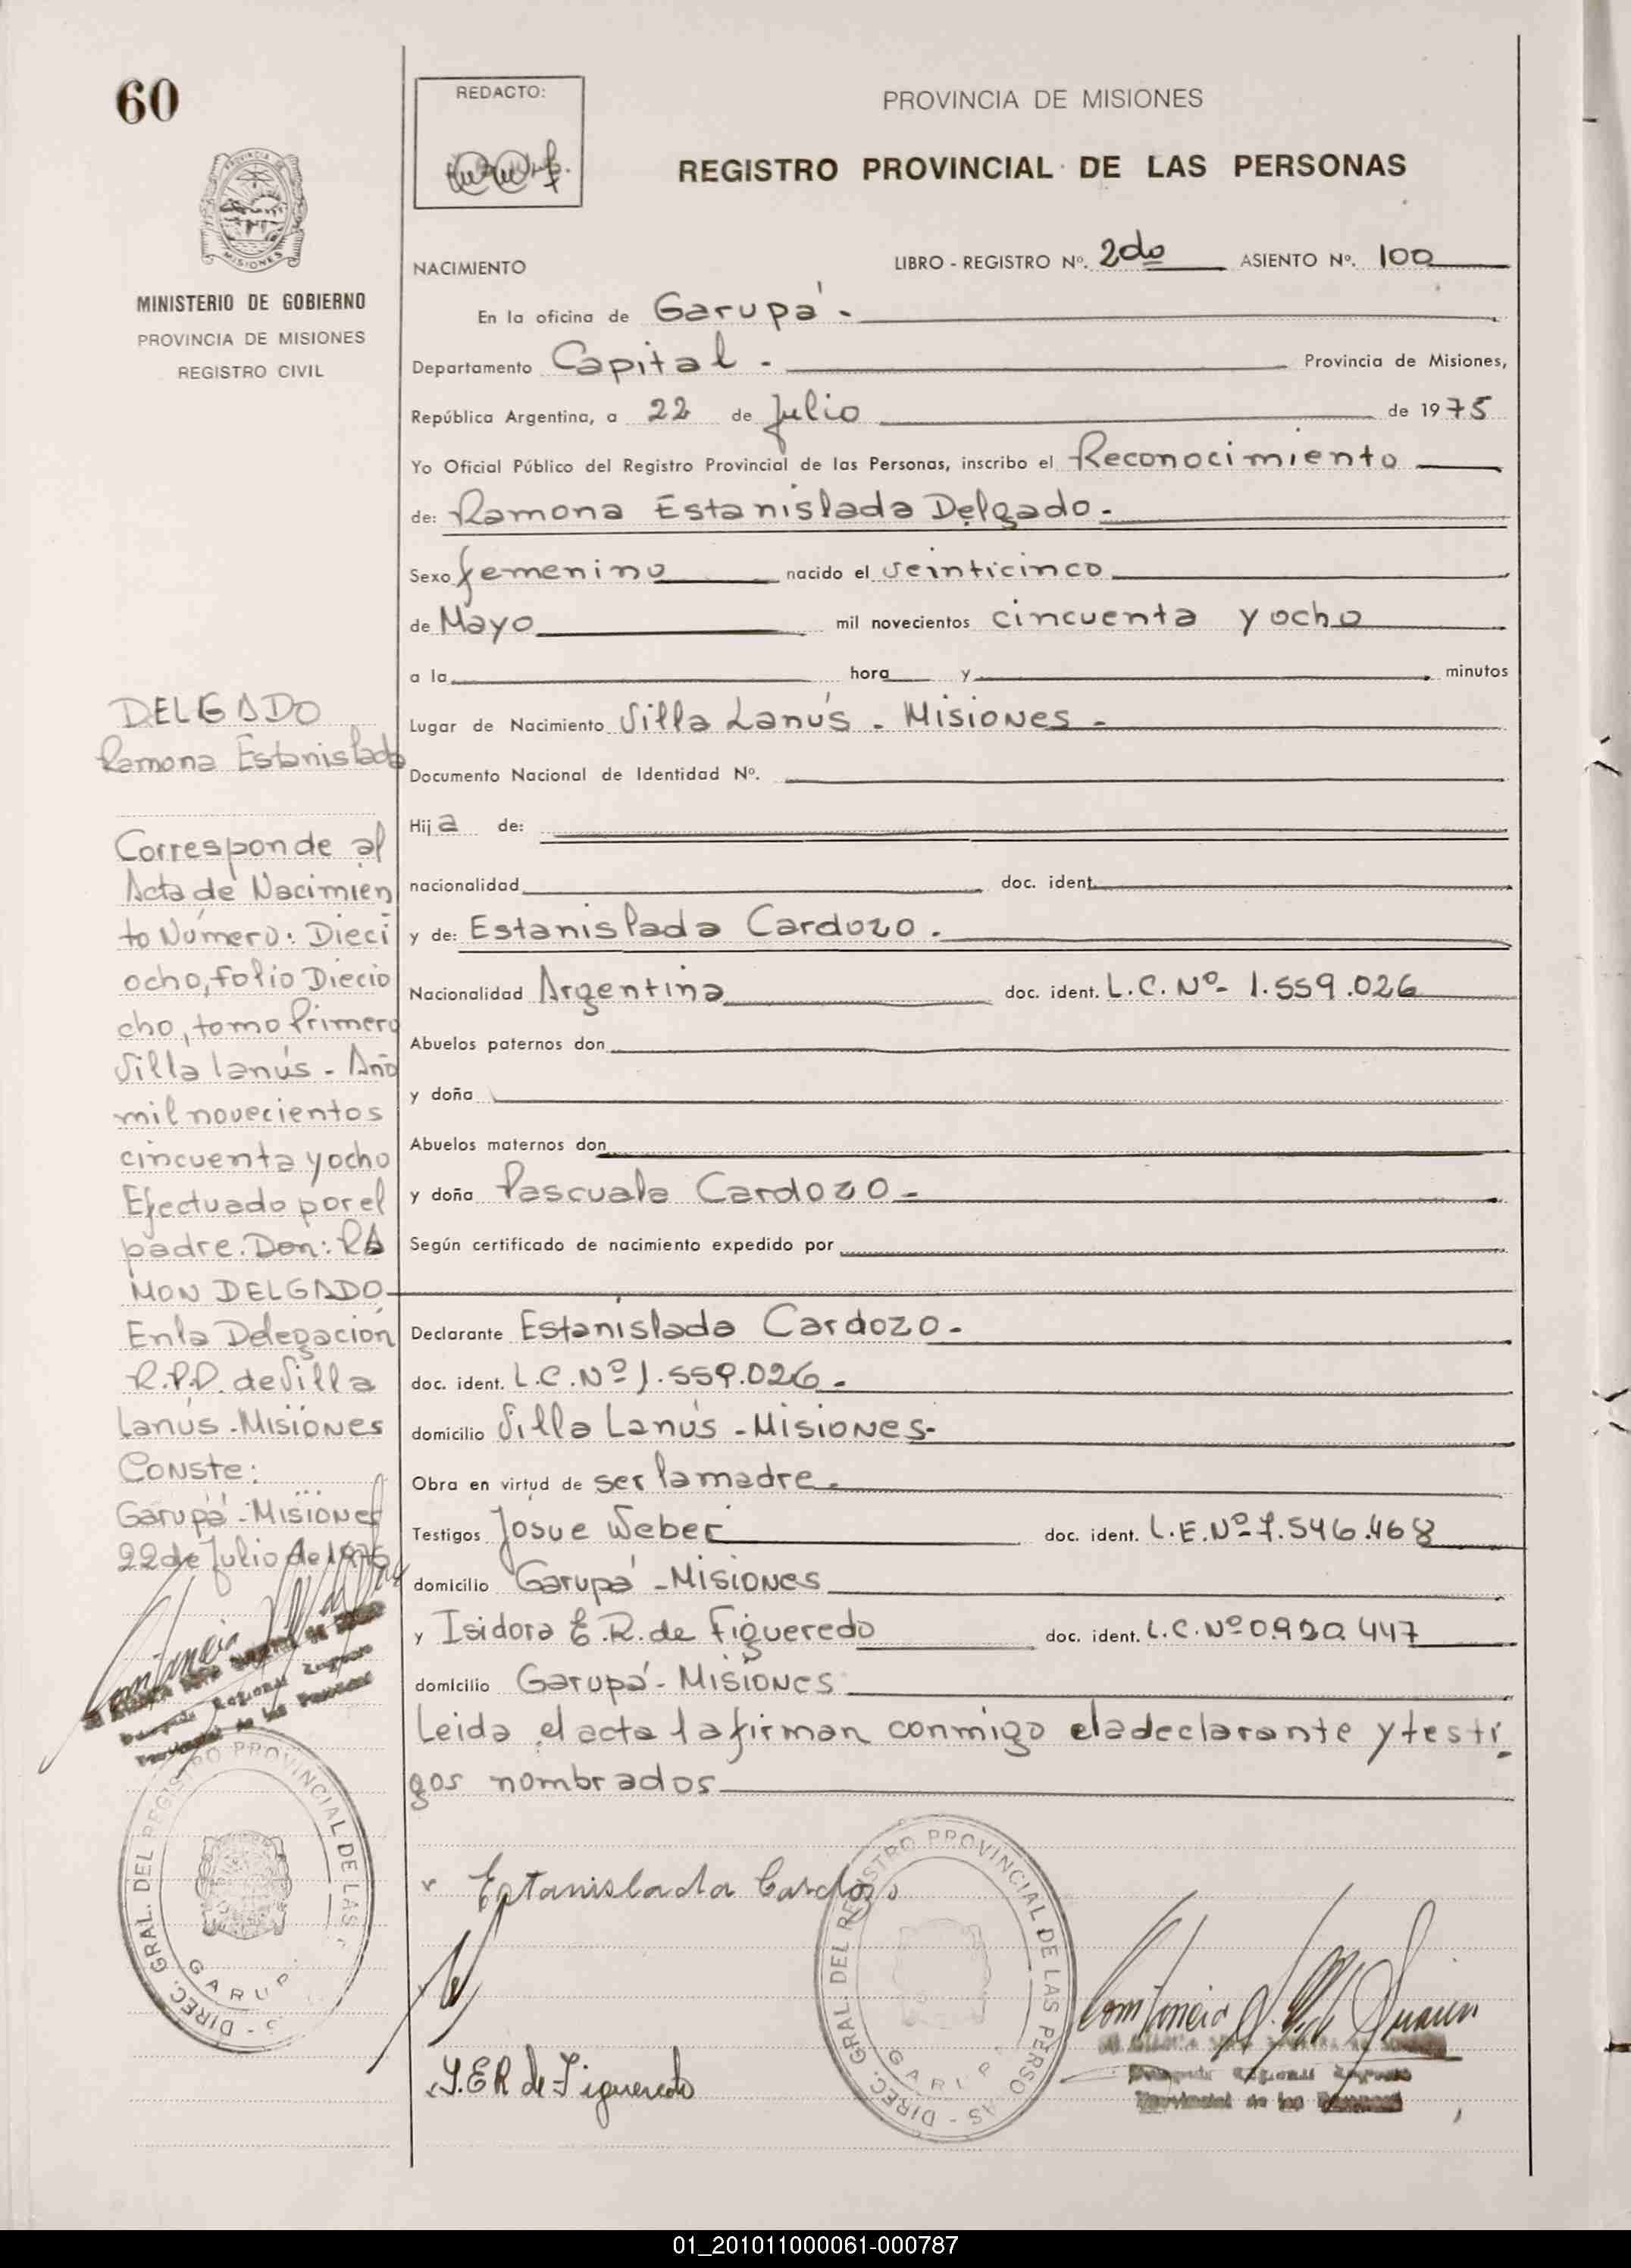 60
PROVINCIA DE
MISIONES
MINISTERIO DE GOBIERNO
PROVINCIA DE MISIONES
REGISTRO CIVIL
REDACTO:
PROVINCIA DE MISIONES
REGISTRO PROVINCIAL DE LAS PERSONAS
NACIMIENTO
LIBRO - REGISTRO Nº. 2do ASIENTO Nº. 100
En la oficina de Garupá.
Departamento Capital. Provincia de Misiones,
República Argentina, a 22 de Julio de 1975
Yo Oficial Público del Registro Provincial de las Personas, inscribo el Reconocimiento
de: Ramona Estanislada Delgado.
Sexo femenino nacido el veinticinco
de Mayo mil novecientos cincuenta y ocho
a la hora y minutos
Lugar de Nacimiento Villa Lanús - Misiones -
Documento Nacional de Identidad Nº.
Hija de:
nacionalidad doc. ident.
y de: Estanislada Cardozo.
Nacionalidad Argentina doc. ident. L.C. Nº- 1.559.026
Abuelos paternos don
y doña
Abuelos maternos don
y doña Pascuala Cardozo -
Según certificado de nacimiento expedido por
Declarante Estanislada Cardozo -
doc. ident. L.C. Nº 1.559.026.
domicilio Villa Lanús - Misiones-
Obra en virtud de ser la madre.
Testigos Josue Weber doc. ident. L.E. Nº 7.546.468
domicilio Garupá - Misiones
y Isidora E. R. de Figueredo doc. ident. L.C. Nº 0.920.447
domicilio Garupá - Misiones
Leida el acta la firman conmigo la declarante y testi
gos nombrados
DELGADO
Ramona Estanislada
Corresponde al
Acta de Nacimien
to Número: Dieci
ocho, folio Diecio
cho, tomo Primero
Villa Lanús - Año
mil novecientos
cincuenta y ocho
Efectuado por el
padre. Don: RA
MON DELGADO
En la Delegación
R.P.P. de Villa
Lanús - Misiones
Conste:
Garupá - Misiones
22 de Julio de 1975
DIREC. GRAL. DEL REGISTRO PROVINCIAL DE LAS
GARUP
Estanislada Cardozo
I.E.R de Figueredo
DIREC. GRAL. DEL REGISTRO PROVINCIAL DE LAS PERSO AS
GARUP
01_201011000061-000787